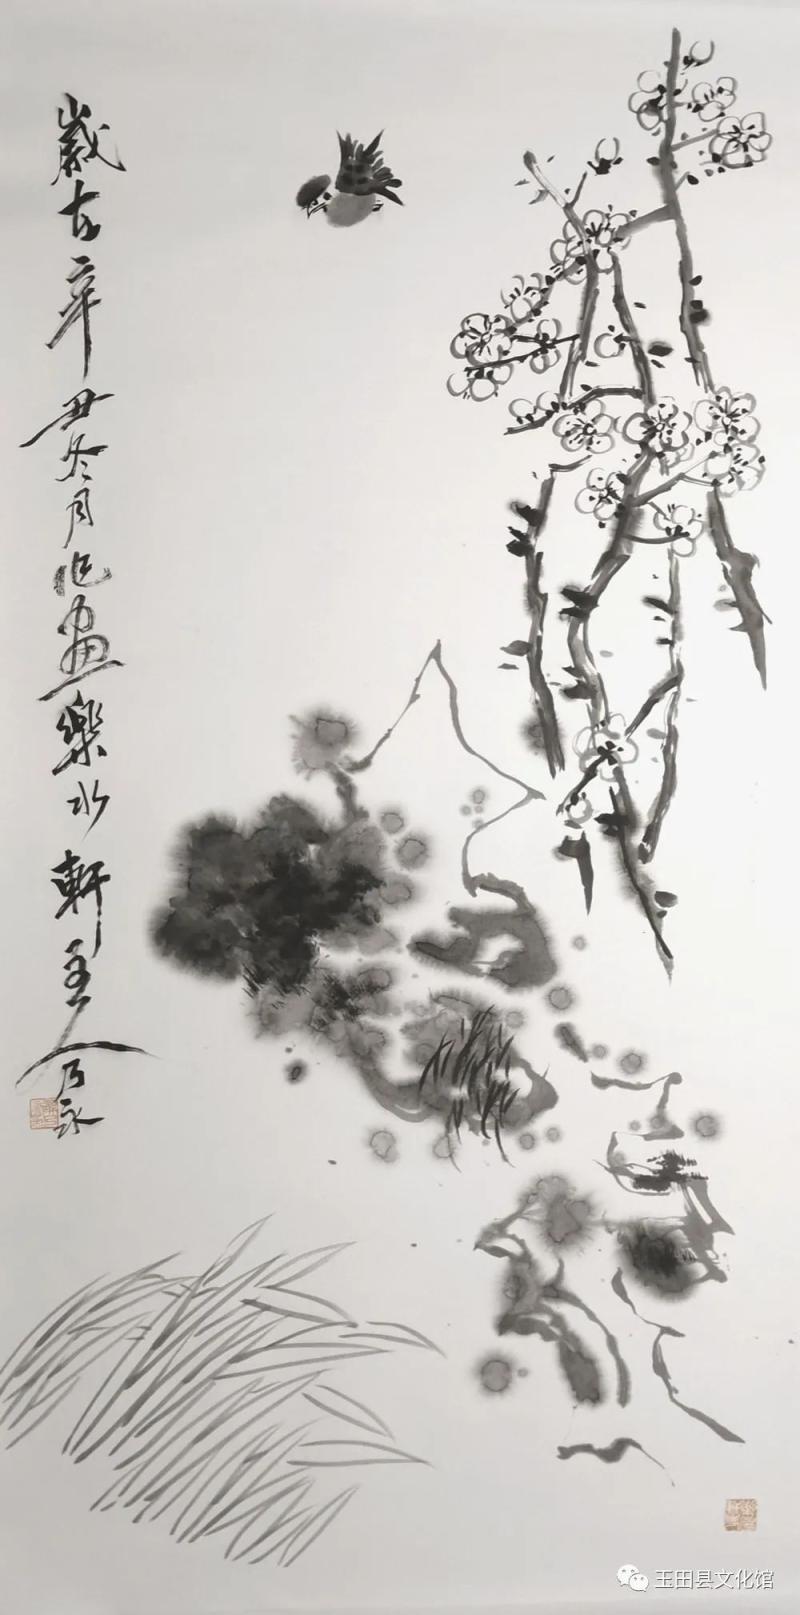 歲在辛丑冬月作畫樂水軒主人乃永
玉田县文化馆